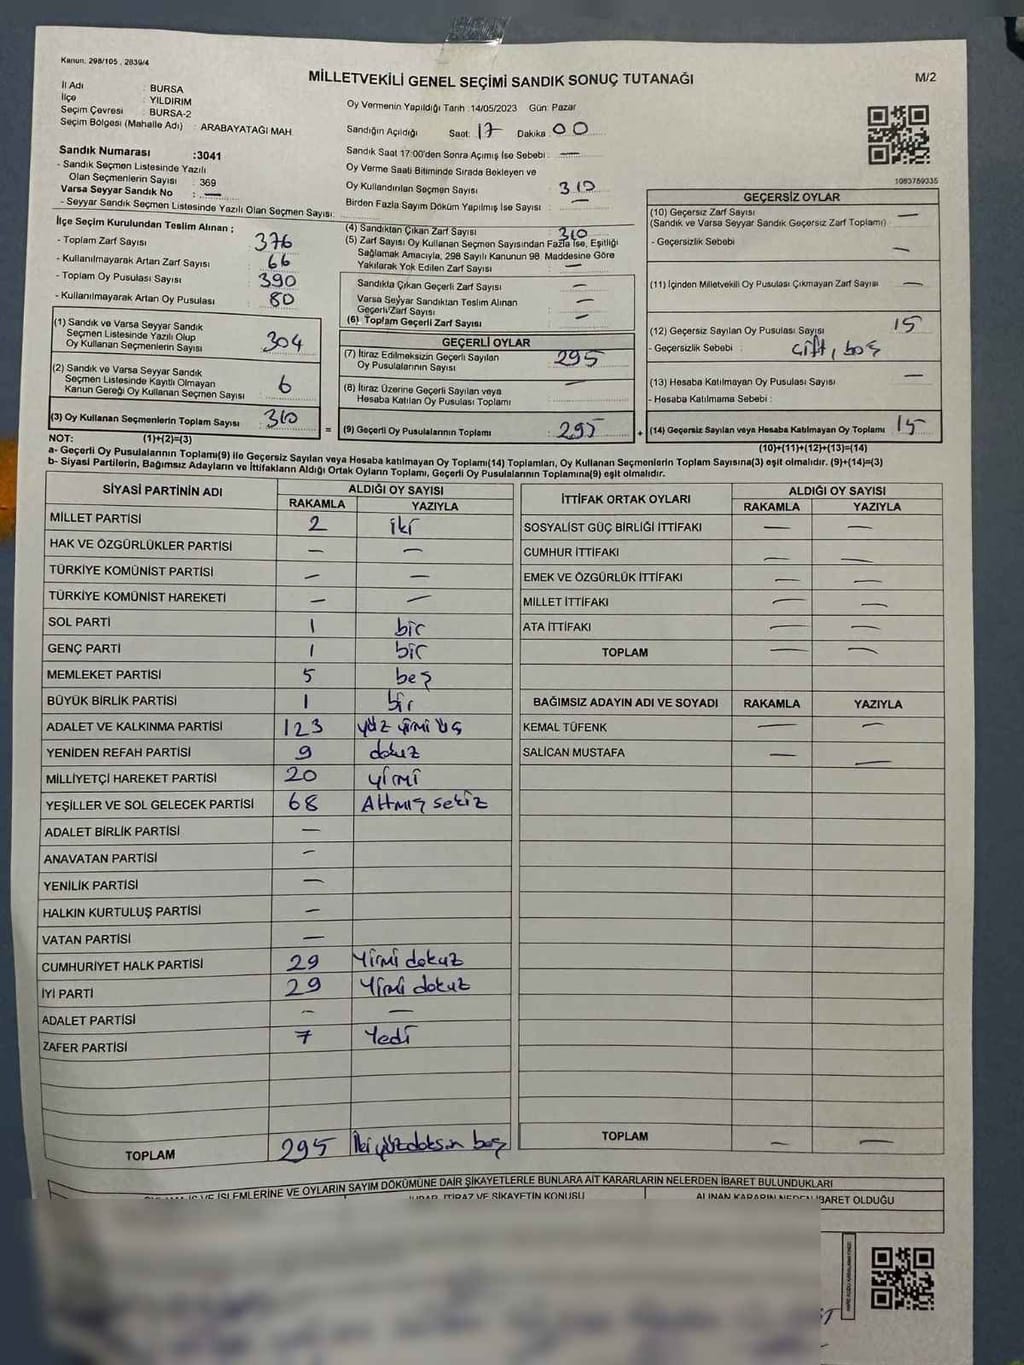 Kanun. 298/105 , 2839/4
MİLLETVEKİLİ GENEL SEÇİMİ SANDIK SONUÇ TUTANAĞI
M/2
İl Adı : BURSA
İlçe : YILDIRIM
Seçim Çevresi : BURSA-2
Seçim Bölgesi (Mahalle Adı) : ARABAYATAĞI MAH.
Sandık Numarası :3041
- Sandık Seçmen Listesinde Yazılı
Olan Seçmenlerin Sayısı : 369
Varsa Seyyar Sandık No : —
- Seyyar Sandık Seçmen Listesinde Yazılı Olan Seçmen Sayısı:
Oy Vermenin Yapıldığı Tarih :14/05/2023 Gün: Pazar
Sandığın Açıldığı Saat: 17 Dakika : 00
Sandık Saat 17:00'den Sonra Açımış İse Sebebi : —
Oy Verme Saati Bitiminde Sırada Bekleyen ve
Oy Kullandırılan Seçmen Sayısı : 310
Birden Fazla Sayım Döküm Yapılmış İse Sayısı : —
1083769335
İlçe Seçim Kurulundan Teslim Alınan ;
- Toplam Zarf Sayısı : 376
- Kullanılmayarak Artan Zarf Sayısı : 66
- Toplam Oy Pusulası Sayısı : 390
- Kullanılmayarak Artan Oy Pusulası : 80
(1) Sandık ve Varsa Seyyar Sandık
Seçmen Listesinde Yazılı Olup
Oy Kullanan Seçmenlerin Sayısı : 304
(2) Sandık ve Varsa Seyyar Sandık
Seçmen Listesinde Kayıtlı Olmayan
Kanun Gereği Oy Kullanan Seçmen Sayısı : 6
(3) Oy Kullanan Seçmenlerin Toplam Sayısı : 310
(4) Sandıktan Çıkan Zarf Sayısı : 310
(5) Zarf Sayısı Oy Kullanan Seçmen Sayısından Fazla İse, Eşitliği
Sağlamak Amacıyla, 298 Sayılı Kanunun 98. Maddesine Göre
Yakılarak Yok Edilen Zarf Sayısı : —
Sandıkta Çıkan Geçerli Zarf Sayısı : —
Varsa Seyyar Sandıktan Teslim Alınan
Geçerli Zarf Sayısı : —
(6) Toplam Geçerli Zarf Sayısı : —
GEÇERLİ OYLAR
(7) İtiraz Edilmeksizin Geçerli Sayılan
Oy Pusulalarının Sayısı : 295
(8) İtiraz Üzerine Geçerli Sayılan veya
Hesaba Katılan Oy Pusulası Toplamı : —
= (9) Geçerli Oy Pusulalarının Toplamı : 295
GEÇERSİZ OYLAR
(10) Geçersiz Zarf Sayısı : —
(Sandık ve Varsa Seyyar Sandık Geçersiz Zarf Toplamı)
- Geçersizlik Sebebi : —
(11) İçinden Milletvekili Oy Pusulası Çıkmayan Zarf Sayısı : —
(12) Geçersiz Sayılan Oy Pusulası Sayısı : 15
- Geçersizlik Sebebi : Çift, boş
(13) Hesaba Katılmayan Oy Pusulası Sayısı : —
- Hesaba Katılmama Sebebi :
+ (14) Geçersiz Sayılan veya Hesaba Katılmayan Oy Toplamı : 15
NOT: (1)+(2)=(3)
(10)+(11)+(12)+(13)=(14)
a- Geçerli Oy Pusulalarının Toplamı(9) ile Geçersiz Sayılan veya Hesaba katılmayan Oy Toplamı(14) Toplamları, Oy Kullanan Seçmenlerin Toplam Sayısına(3) eşit olmalıdır. (9)+(14)=(3)
b- Siyasi Partilerin, Bağımsız Adayların ve İttifakların Aldığı Ortak Oyların Toplamı, Geçerli Oy Pusulalarının Toplamına(9) eşit olmalıdır.
SİYASİ PARTİNİN ADI ALDIĞI OY SAYISI
RAKAMLA YAZIYLA
MİLLET PARTİSİ 2 iki
HAK VE ÖZGÜRLÜKLER PARTİSİ — —
TÜRKİYE KOMÜNİST PARTİSİ — —
TÜRKİYE KOMÜNİST HAREKETİ — —
SOL PARTİ 1 bir
GENÇ PARTİ 1 bir
MEMLEKET PARTİSİ 5 beş
BÜYÜK BİRLİK PARTİSİ 1 bir
ADALET VE KALKINMA PARTİSİ 123 yüz yirmi üç
YENİDEN REFAH PARTİSİ 9 dokuz
MİLLİYETÇİ HAREKET PARTİSİ 20 yirmi
YEŞİLLER VE SOL GELECEK PARTİSİ 68 Altmış sekiz
ADALET BİRLİK PARTİSİ —
ANAVATAN PARTİSİ —
YENİLİK PARTİSİ —
HALKIN KURTULUŞ PARTİSİ —
VATAN PARTİSİ —
CUMHURİYET HALK PARTİSİ 29 Yirmi dokuz
İYİ PARTİ 29 Yirmi dokuz
ADALET PARTİSİ — —
ZAFER PARTİSİ 7 Yedi
TOPLAM 295 İkiyüzdoksan beş
İTTİFAK ORTAK OYLARI ALDIĞI OY SAYISI
RAKAMLA YAZIYLA
SOSYALİST GÜÇ BİRLİĞİ İTTİFAKI — —
CUMHUR İTTİFAKI — —
EMEK VE ÖZGÜRLÜK İTTİFAKI — —
MİLLET İTTİFAKI — —
ATA İTTİFAKI — —
TOPLAM — —
BAĞIMSIZ ADAYIN ADI VE SOYADI RAKAMLA YAZIYLA
KEMAL TÜFENK — —
SALİCAN MUSTAFA — —
TOPLAM — —
İŞLEMLERİNE VE OYLARIN SAYIM DÖKÜMÜNE DAİR ŞİKAYETLERLE BUNLARA AİT KARARLARIN NELERDEN İBARET BULUNDUKLARI
İTİRAZ VE ŞİKAYETİN KONUSU ALINAN KARARIN NEDEN İBARET OLDUĞU